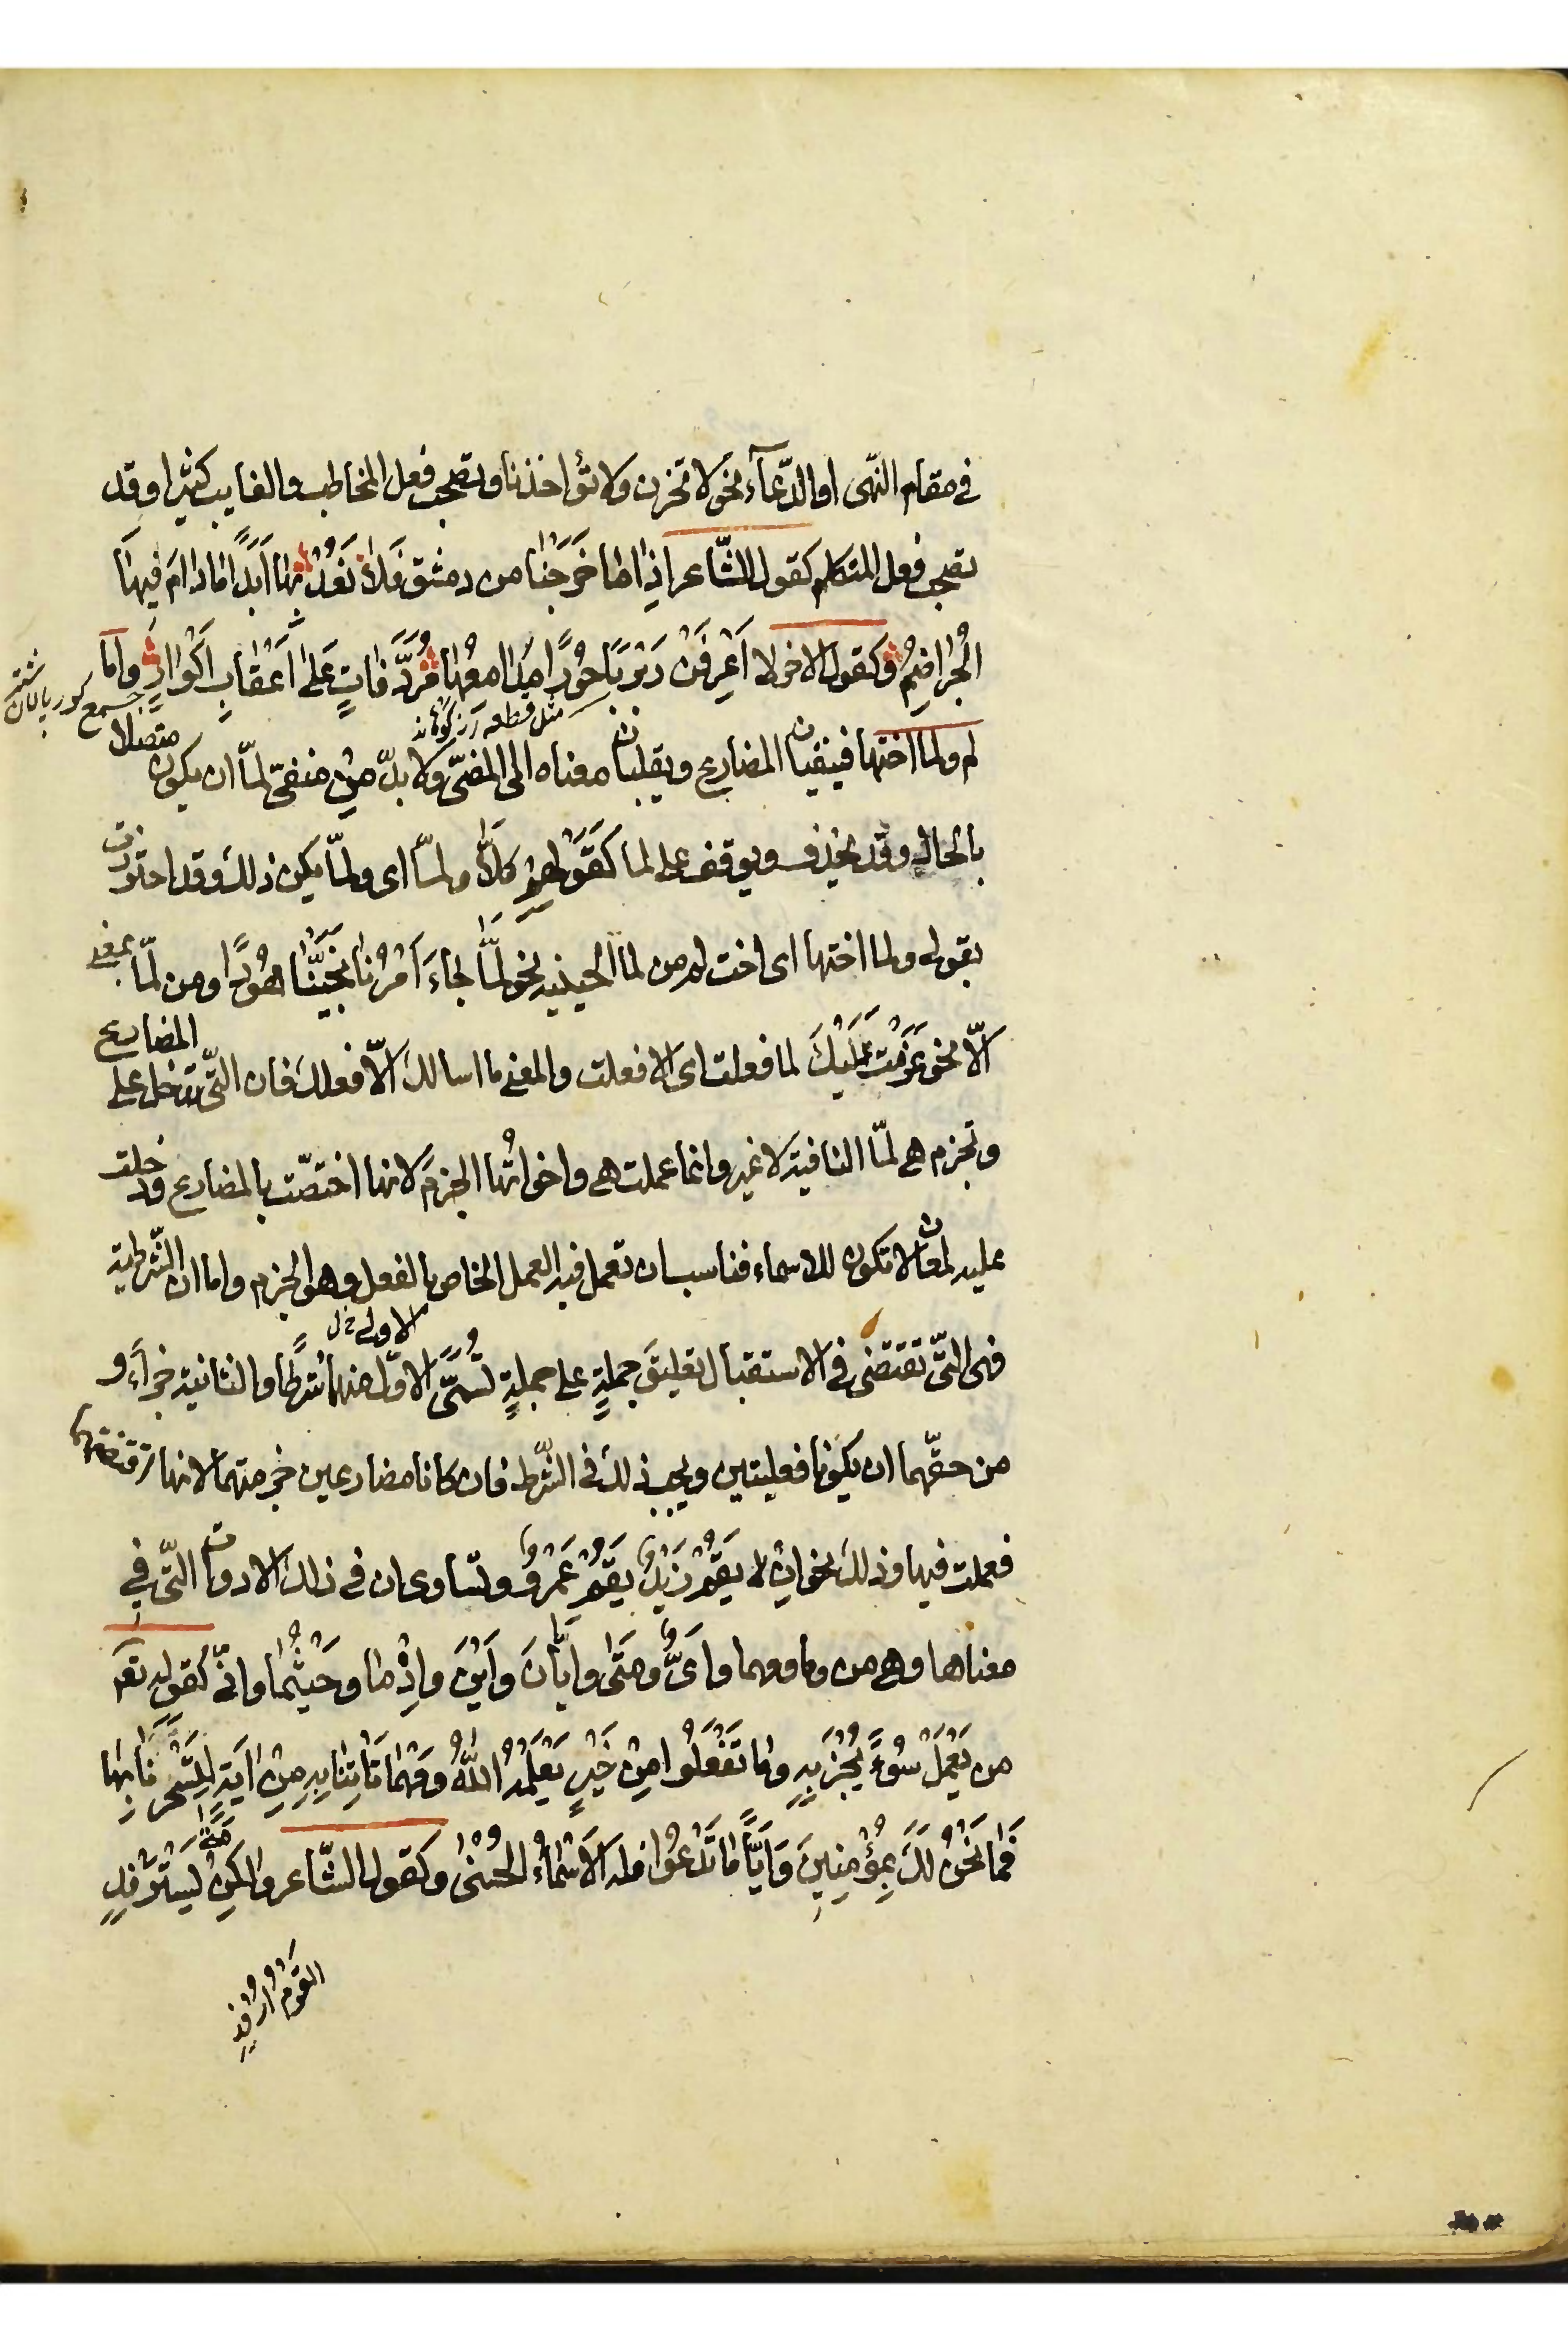 في مقام النّهى او الدّعآء نحو لا تحزن ولا تؤاخذنا ويصحب فعل المخاطب والغايب كثيرا وقد
يصحب فعل المتكلم كقول الشّاعر اذِا ما خَرَجْنا من دمشق فَلا نَعُدْ بها اَبَدًا ما دامَ فيها
الجُراضِمُ وكقول الاخر لا اَعْرِفَنْ رَبْرَبًا حُوْرًا مدامعُها مُرَدَّفاتٍ عَلىٰ اَعْقابِ اَكْوارِ واما
جمع كور پالان شتر
مثل قطعه
لم ولما اختها فينفيان المضارع ويقلبان معناه الى المضىّ ولا بدّ مِنْ منفىّ لمّا ان يكون متصلا
بالحال وقد يحذف ويوقف على لما كَقَوْلهِمْ كلاّ ولمّا اى ولمّا يكن ذلك وقد احترزت
بقوله ولما اختها اى اخت لم من لما الحينيه نحو لَمّا جاءَ اَمْرُنا نَجَّيْنا هُوْدًا ومن لمّا بمعنى
الاّ نحو عَزَمْتُ عَلَيْكَ لما فعلت اى الا فعلت والمعنى ما اسالك الاّ فعلك فان الّتى تدخل على المضارع
وتجزم هى لمّا النافية لا غير وانما عملت هى واخواتُها الجزمَ لانها اختصّت بالمضارع وقد دخلت
عليه لمعان لا تكون للاسماء فناسب ان تعمل فيه العمل الخاص بالفعل وهو الجزم واما ان الشّرطية
فهى الّتى تقتضى فى الاستقبال تعليقَ جملةٍ على جملةٍ تُسَمَّى الاوّل منهما شرطًا والثانية جزآءً و
الاولى خ ل
من حقّهما ان يكونا فعليتين ويجب ذلك فى الشّرط فان كانا مضارعين جزمتهما لانها اقتضتهما
فعملت فيها وذلك نحو اِنْ لا يَقُمْ زَيْدٌ يَقُمْ عَمْرٌو وتساوى ان فى ذلك الادوات الّتى فِي
معناها وهى من وما ومهما واَىٌّ ومَتىٰ وايّانَ واَيْنَ واِذْما وحَيْثُما وانّى كقوله تعَ
من يَعْمَلْ سُوْءً يُجْزَ بِهِ وما تَفْعَلُوا مِنْ خَيْرٍ يَعْلَمْهُ اللّهُ ومَهْما تَأتِنا بِهِ مِنْ ايَةٍ لِتَسْحَرَنا بِها
فَما نَحْنُ لَكَ بِمُؤْمِنِينَ وَايًّا ما تَدْعُوْا فله الاَسْماءُ الحُسْنىٰ وكقول الشّاعر ولكِنْ مَتىٰ يَسْتَرْفِدِ
القَوْمُ اَرْفِدِ